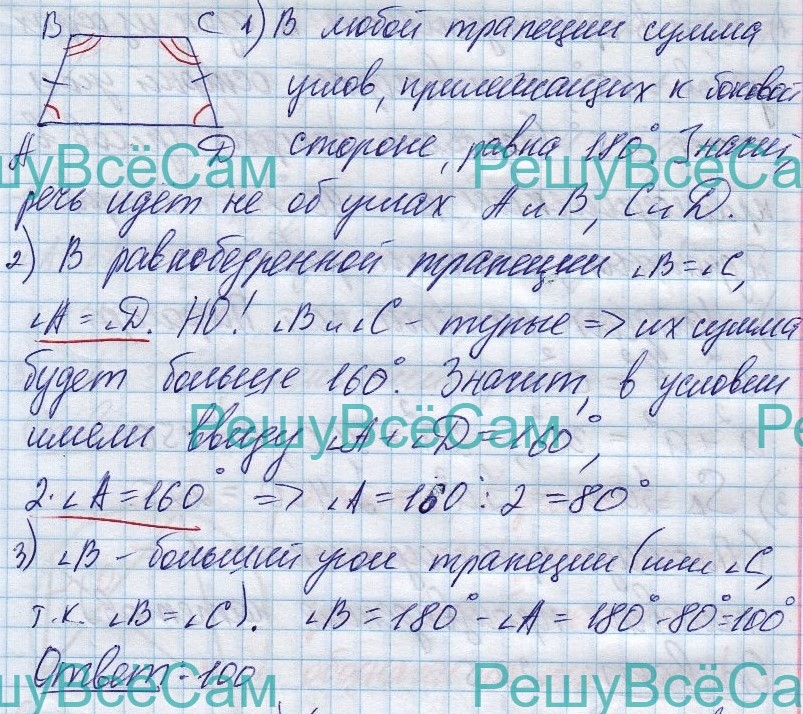 B C 1) В любой трапеции сумма
углов, прилежащих к боковой
A D стороне, равна 180°. Значит,
РешуВсёСам РешуВсёСам
речь идет не об углах A и B, C и D.
2) В равнобедренной трапеции ∠B=∠C,
∠A=∠D. НО! ∠B и ∠C - тупые => их сумма
будет больше 160°. Значит, в условии
РешуВсёСам Ре
имели ввиду ∠A+∠D=160°,
2·∠A=160° => ∠A=160:2=80°
3) ∠B - больший угол трапеции (или ∠C,
т.к. ∠B=∠C). ∠B=180°-∠A=180°-80°=100°
Ответ: 100
шуВсёСам РешуВсёСам